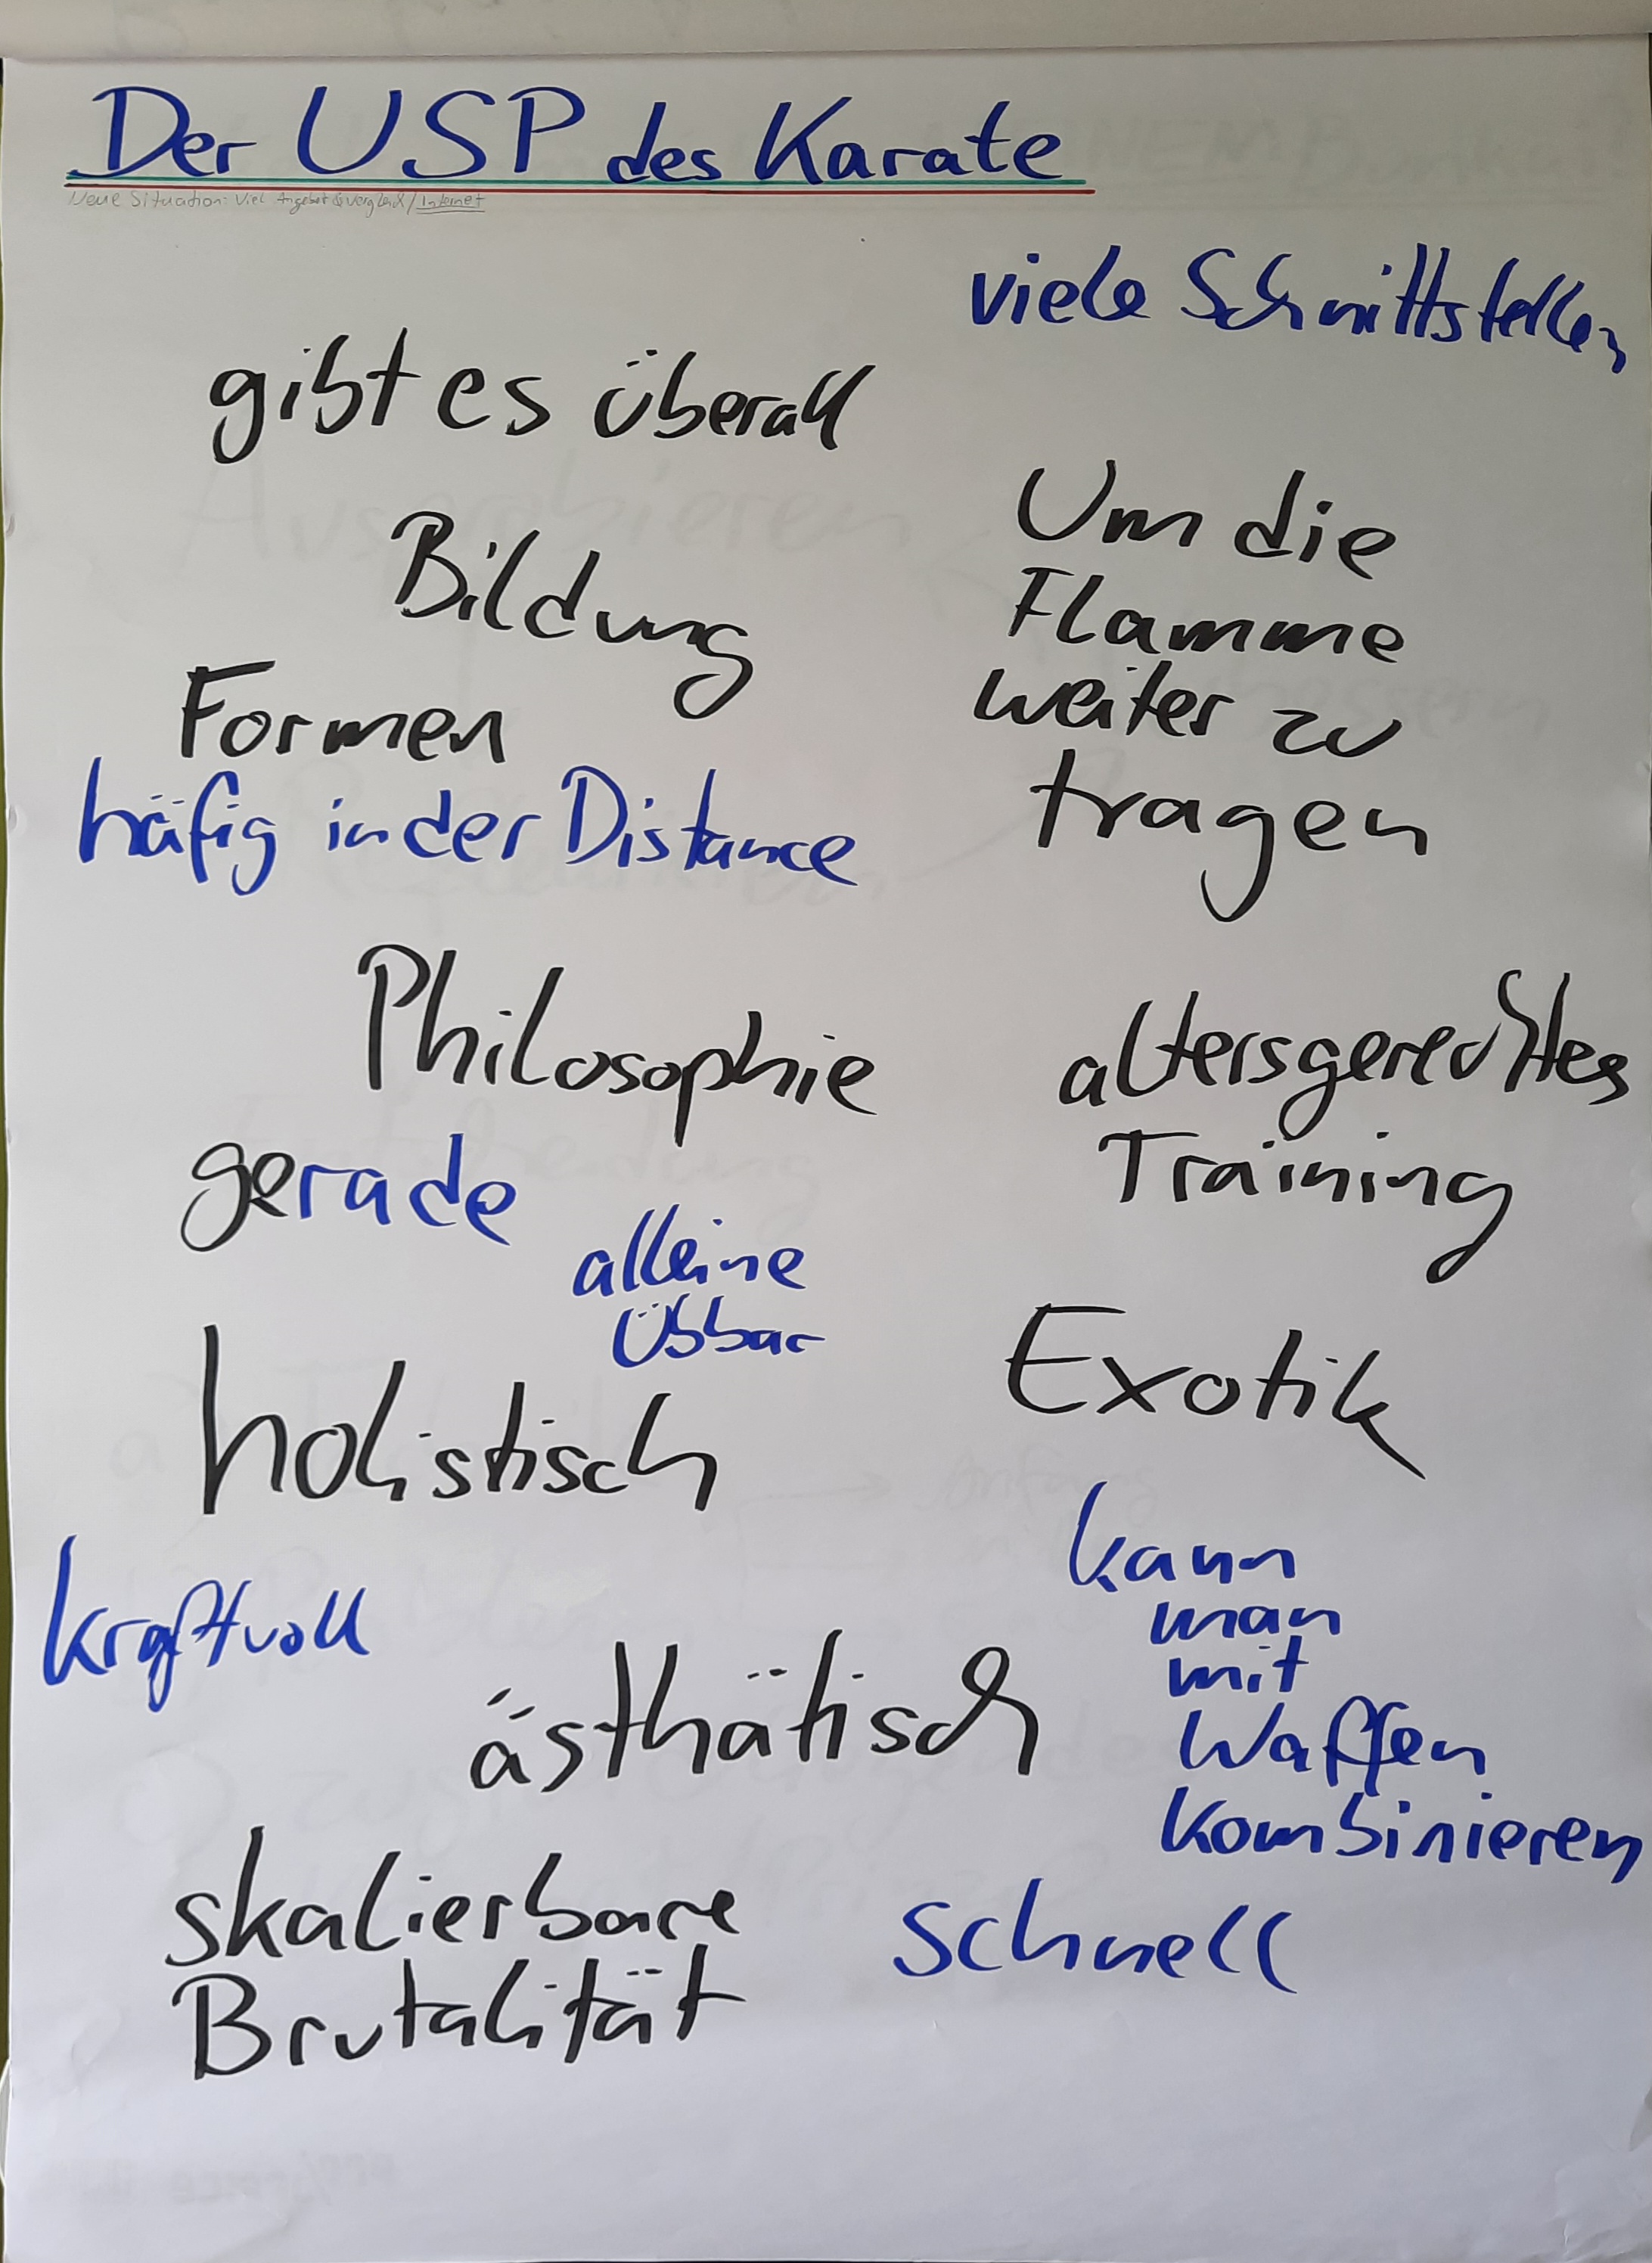 Der USP des Karate
Neue Situation: Viel Angebot & Vergleich / Internet
viele Schnittstellen
gibt es überall
Bildung
Um die
Flamme
weiter zu
tragen
Formen
häfig in der Distance
Philosophie
altersgerechtes
Training
gerade
alleine
übbar
Exotik
holistisch
kann
man
mit
Waffen
kombinieren
kraftvoll
ästhätisch
skalierbare
Brutalität
schnell